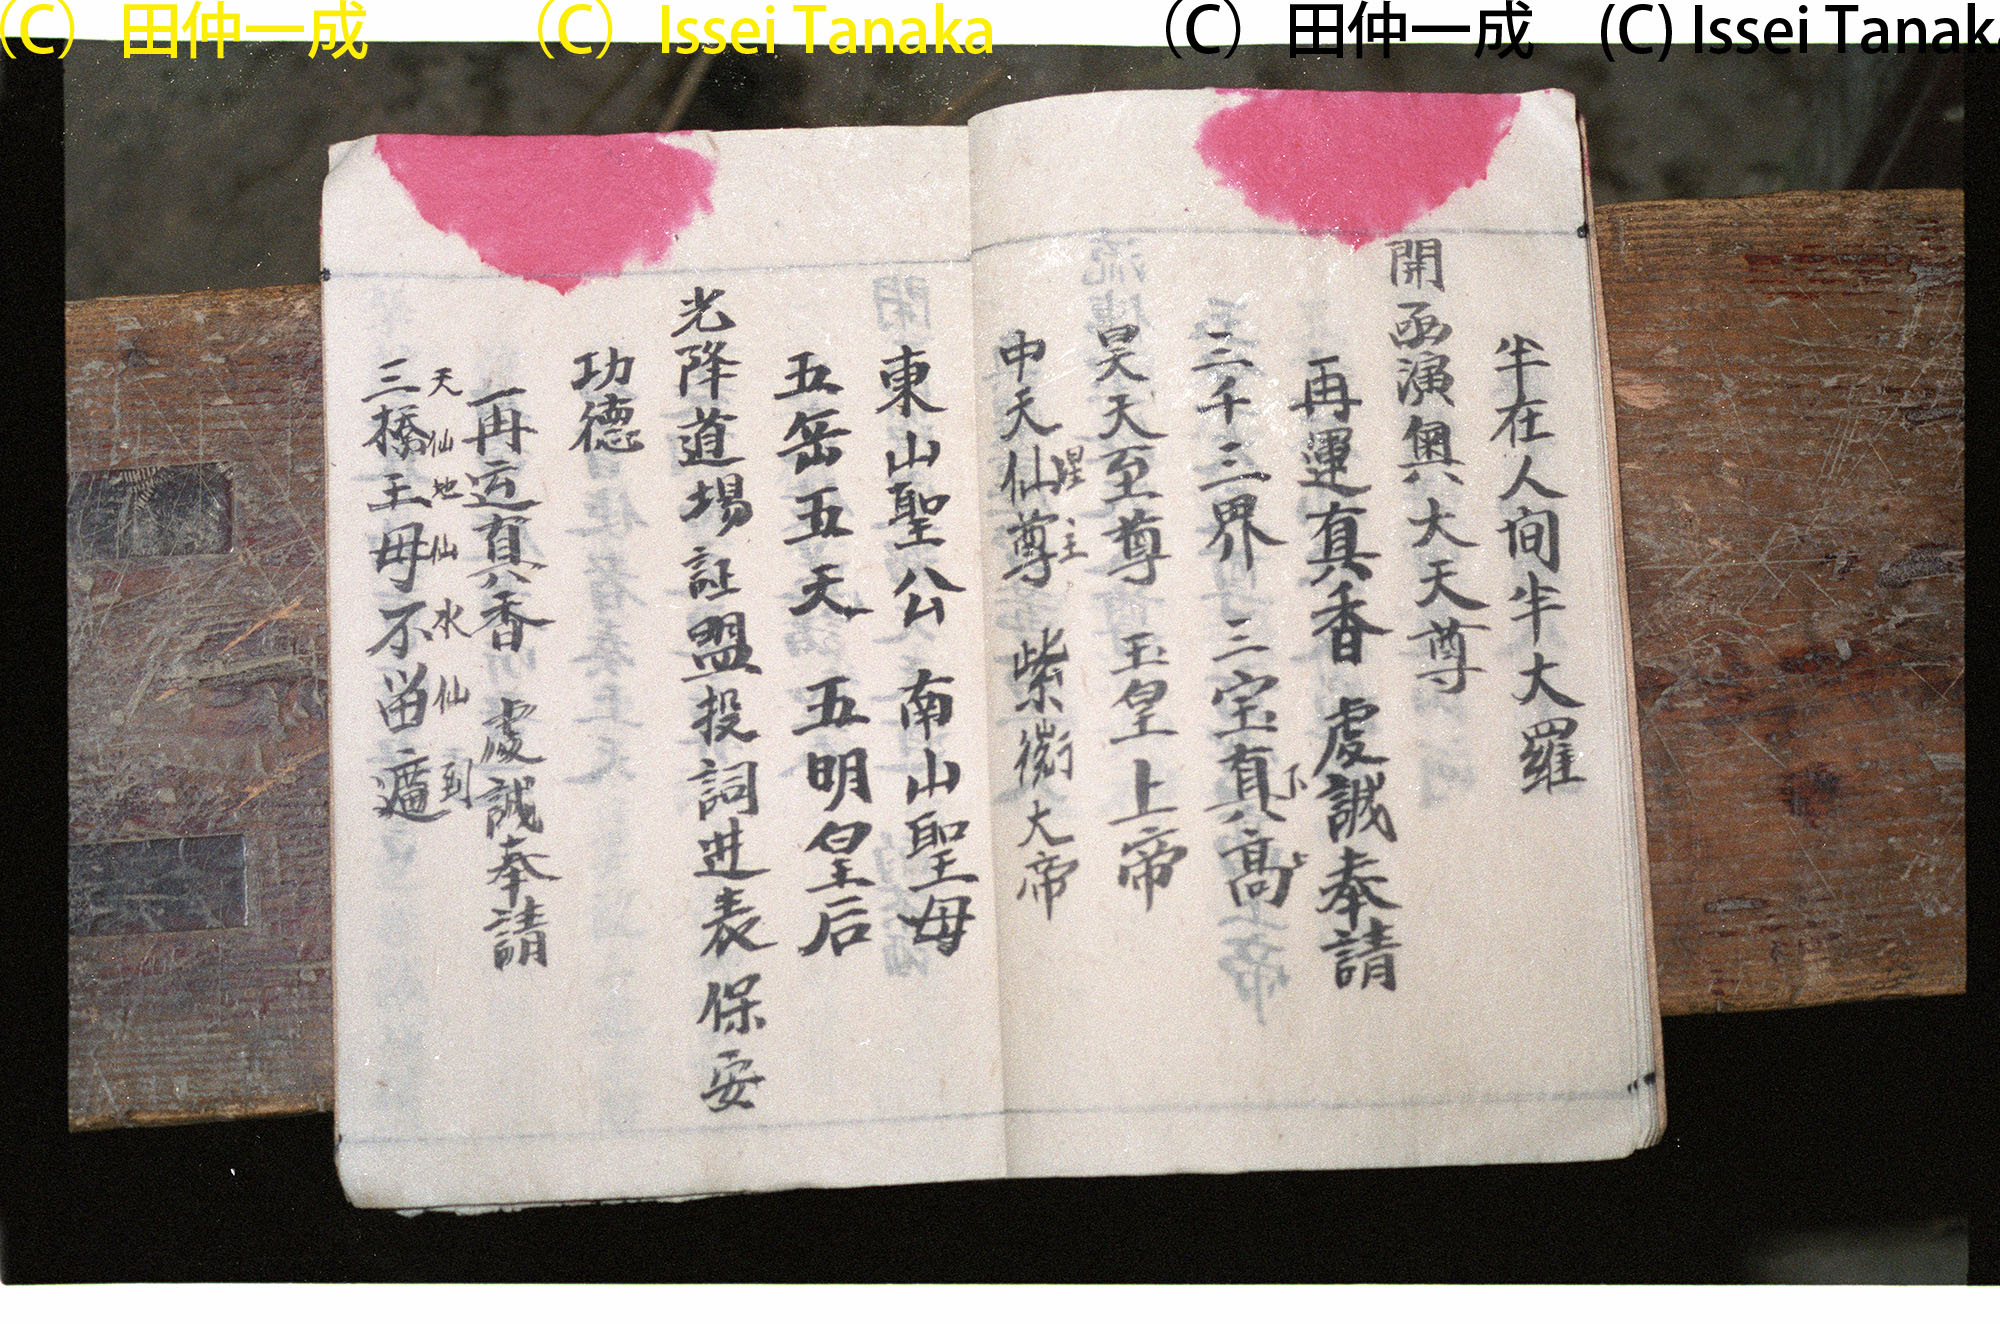 (C) 田仲一成 (C) Issei Tanaka (C) 田仲一成 (C) Issei Tanaka
半在人间半大羅
開函演奥大天尊
再運真香 虔誠奉請
三千三界 三宝真高
下
上
昊天至尊 玉皇上帝
星主
中天仙尊 紫微大帝
東山聖公 南山聖母
五岳五天 五明皇后
光降道場 証盟投詞进表 保安
功德
一再运真香 虔誠奉請
天仙地仙水仙到
三橋王母不留